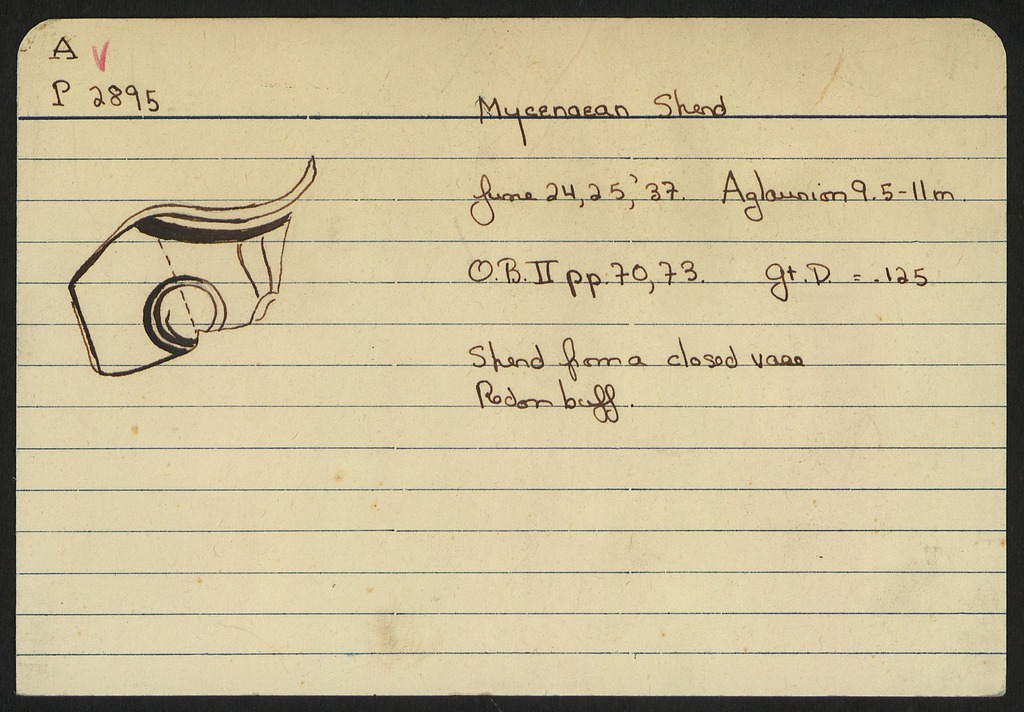 A V
P 2895
Mycenaean Sherd
June 24, 25, '37. Aglaurion 9.5-11m.
O.B. II pp. 70, 73. gt. D. = .125
Sherd from a closed vase
Red on buff.